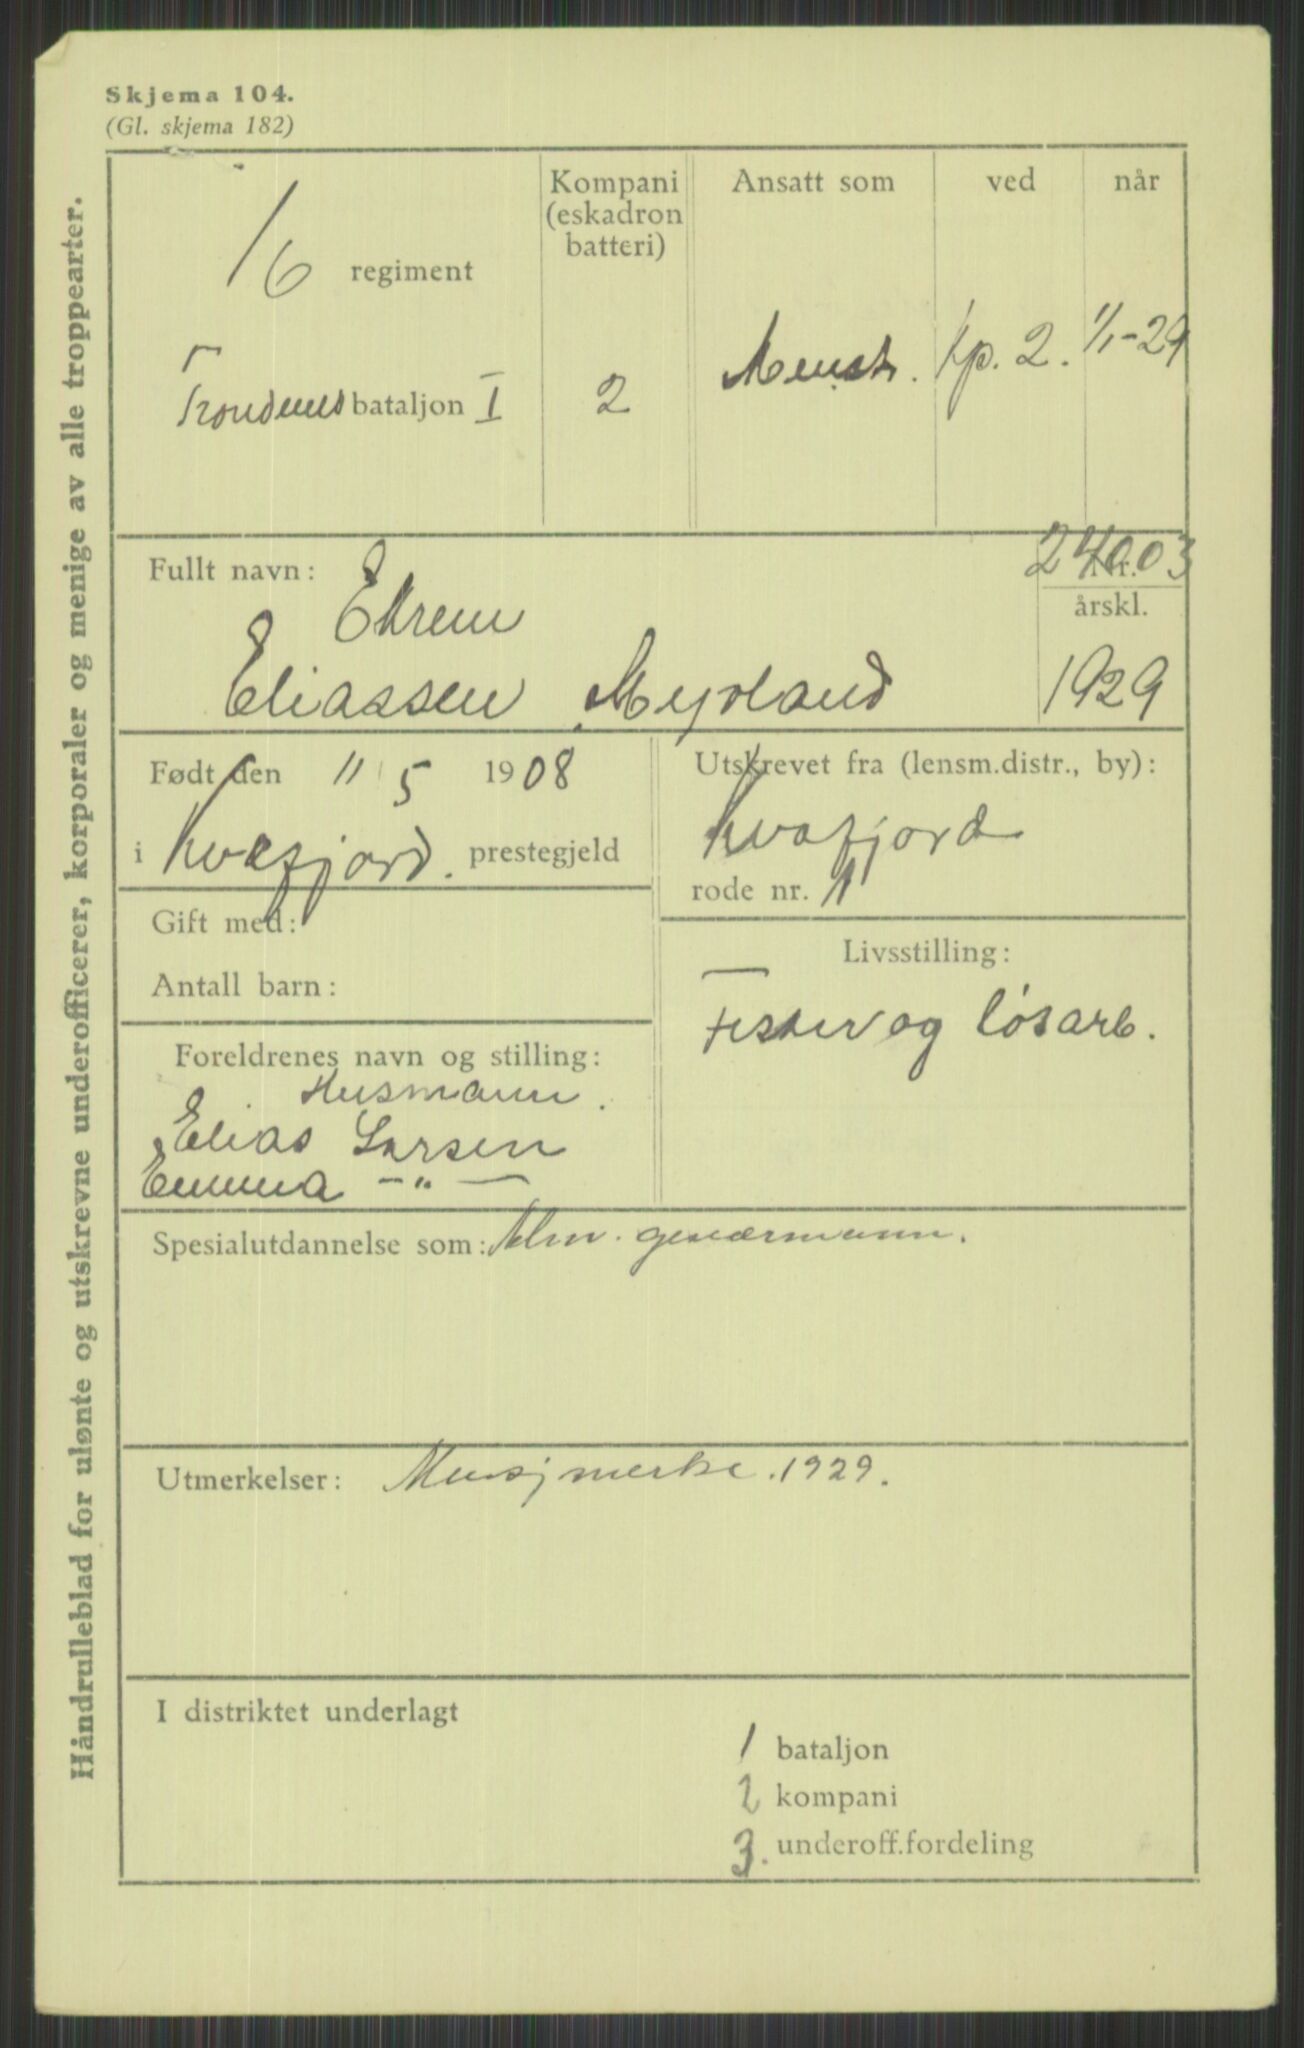 Skjema 104.
(Gl. skjema 182)
Håndrulleblad for ulønte og utskrevne underofficerer, korporaler og menige av alle troppearter.
16 regiment
Trondenes bataljon I
Kompani
(eskadron
batteri)
2
Ansatt som
Mensk.
ved
Kp. 2.
når
1/1-29
Fullt navn:
Ekrem
Eliassen Myrland
24003
Nr.
årskl.
1929
Født den 11 5 1908
i Kvæfjord. prestegjeld
Utskrevet fra (lensm.distr., by):
Kvæfjord
rode nr. 11
Gift med:
Antall barn:
Livsstilling:
Fisker og løsarb.
Foreldrenes navn og stilling:
Husmann.
Elias Larsen
Emma -"-
Spesialutdannelse som: Alm. geværmann.
Utmerkelser: merke. 1929.
I distriktet underlagt
1 bataljon
2 kompani
3. underoff.fordeling